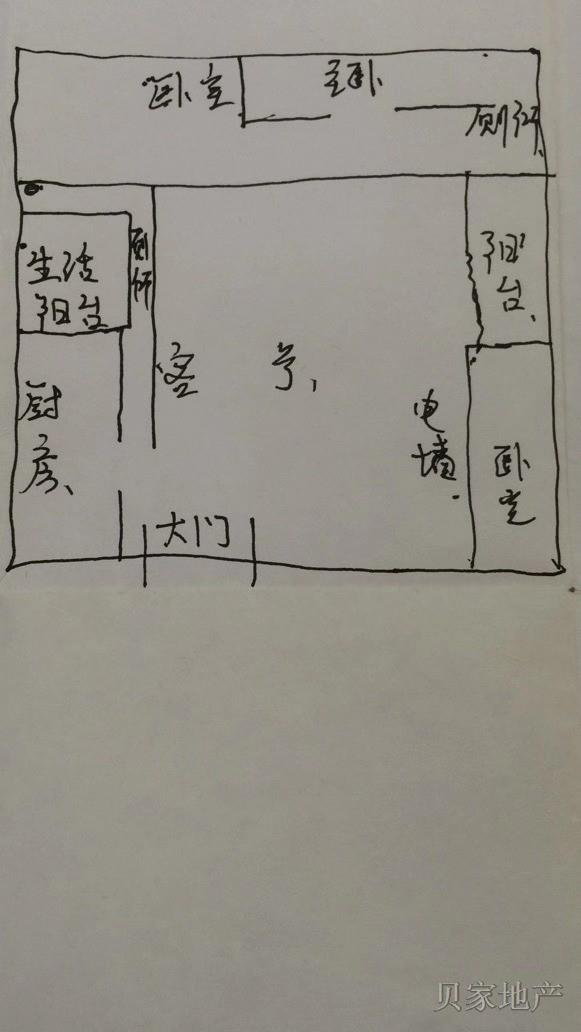 卧室
主卧
厕所
厕所
生活
阳台
阳台
客 厅
厨房
电墙
卧室
大门
贝家地产